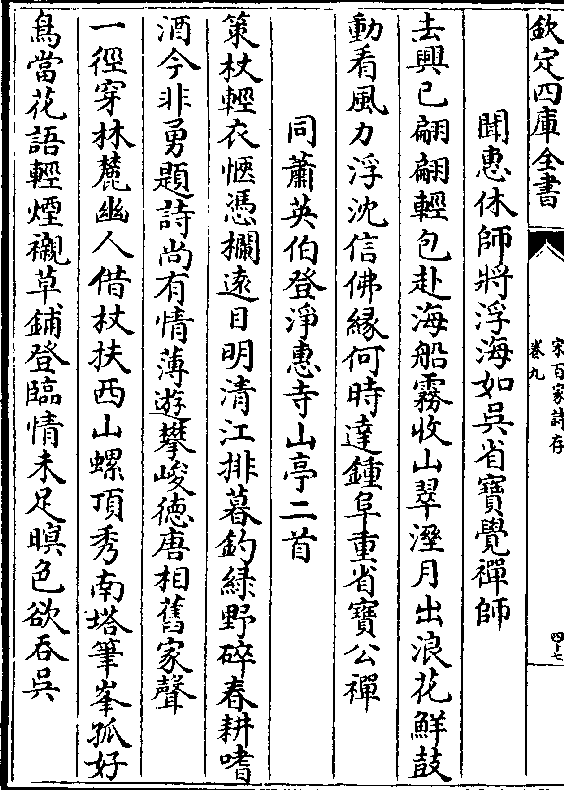 欽定四庫全書
宋百家詩存
卷九
四十七
聞惠休師將浮海如吳省寶覺禪師
去興已翩翩輕包赴海船霧收山翠溼月出浪花鮮鼓
動看風力浮沈信佛緣何時達鍾阜重省寶公禪
同蕭英伯登淨惠寺山亭二首
策杖輕衣愜憑欄遠目明清江排暮釣綠野碎春耕嗜
酒今非勇題詩尚有情薄遊攀峻德唐相舊家聲
一徑穿林麓幽人借杖扶西山螺頂秀南塔筆峯孤好
鳥當花語輕煙襯草鋪登臨情未足暝色欲吞吳